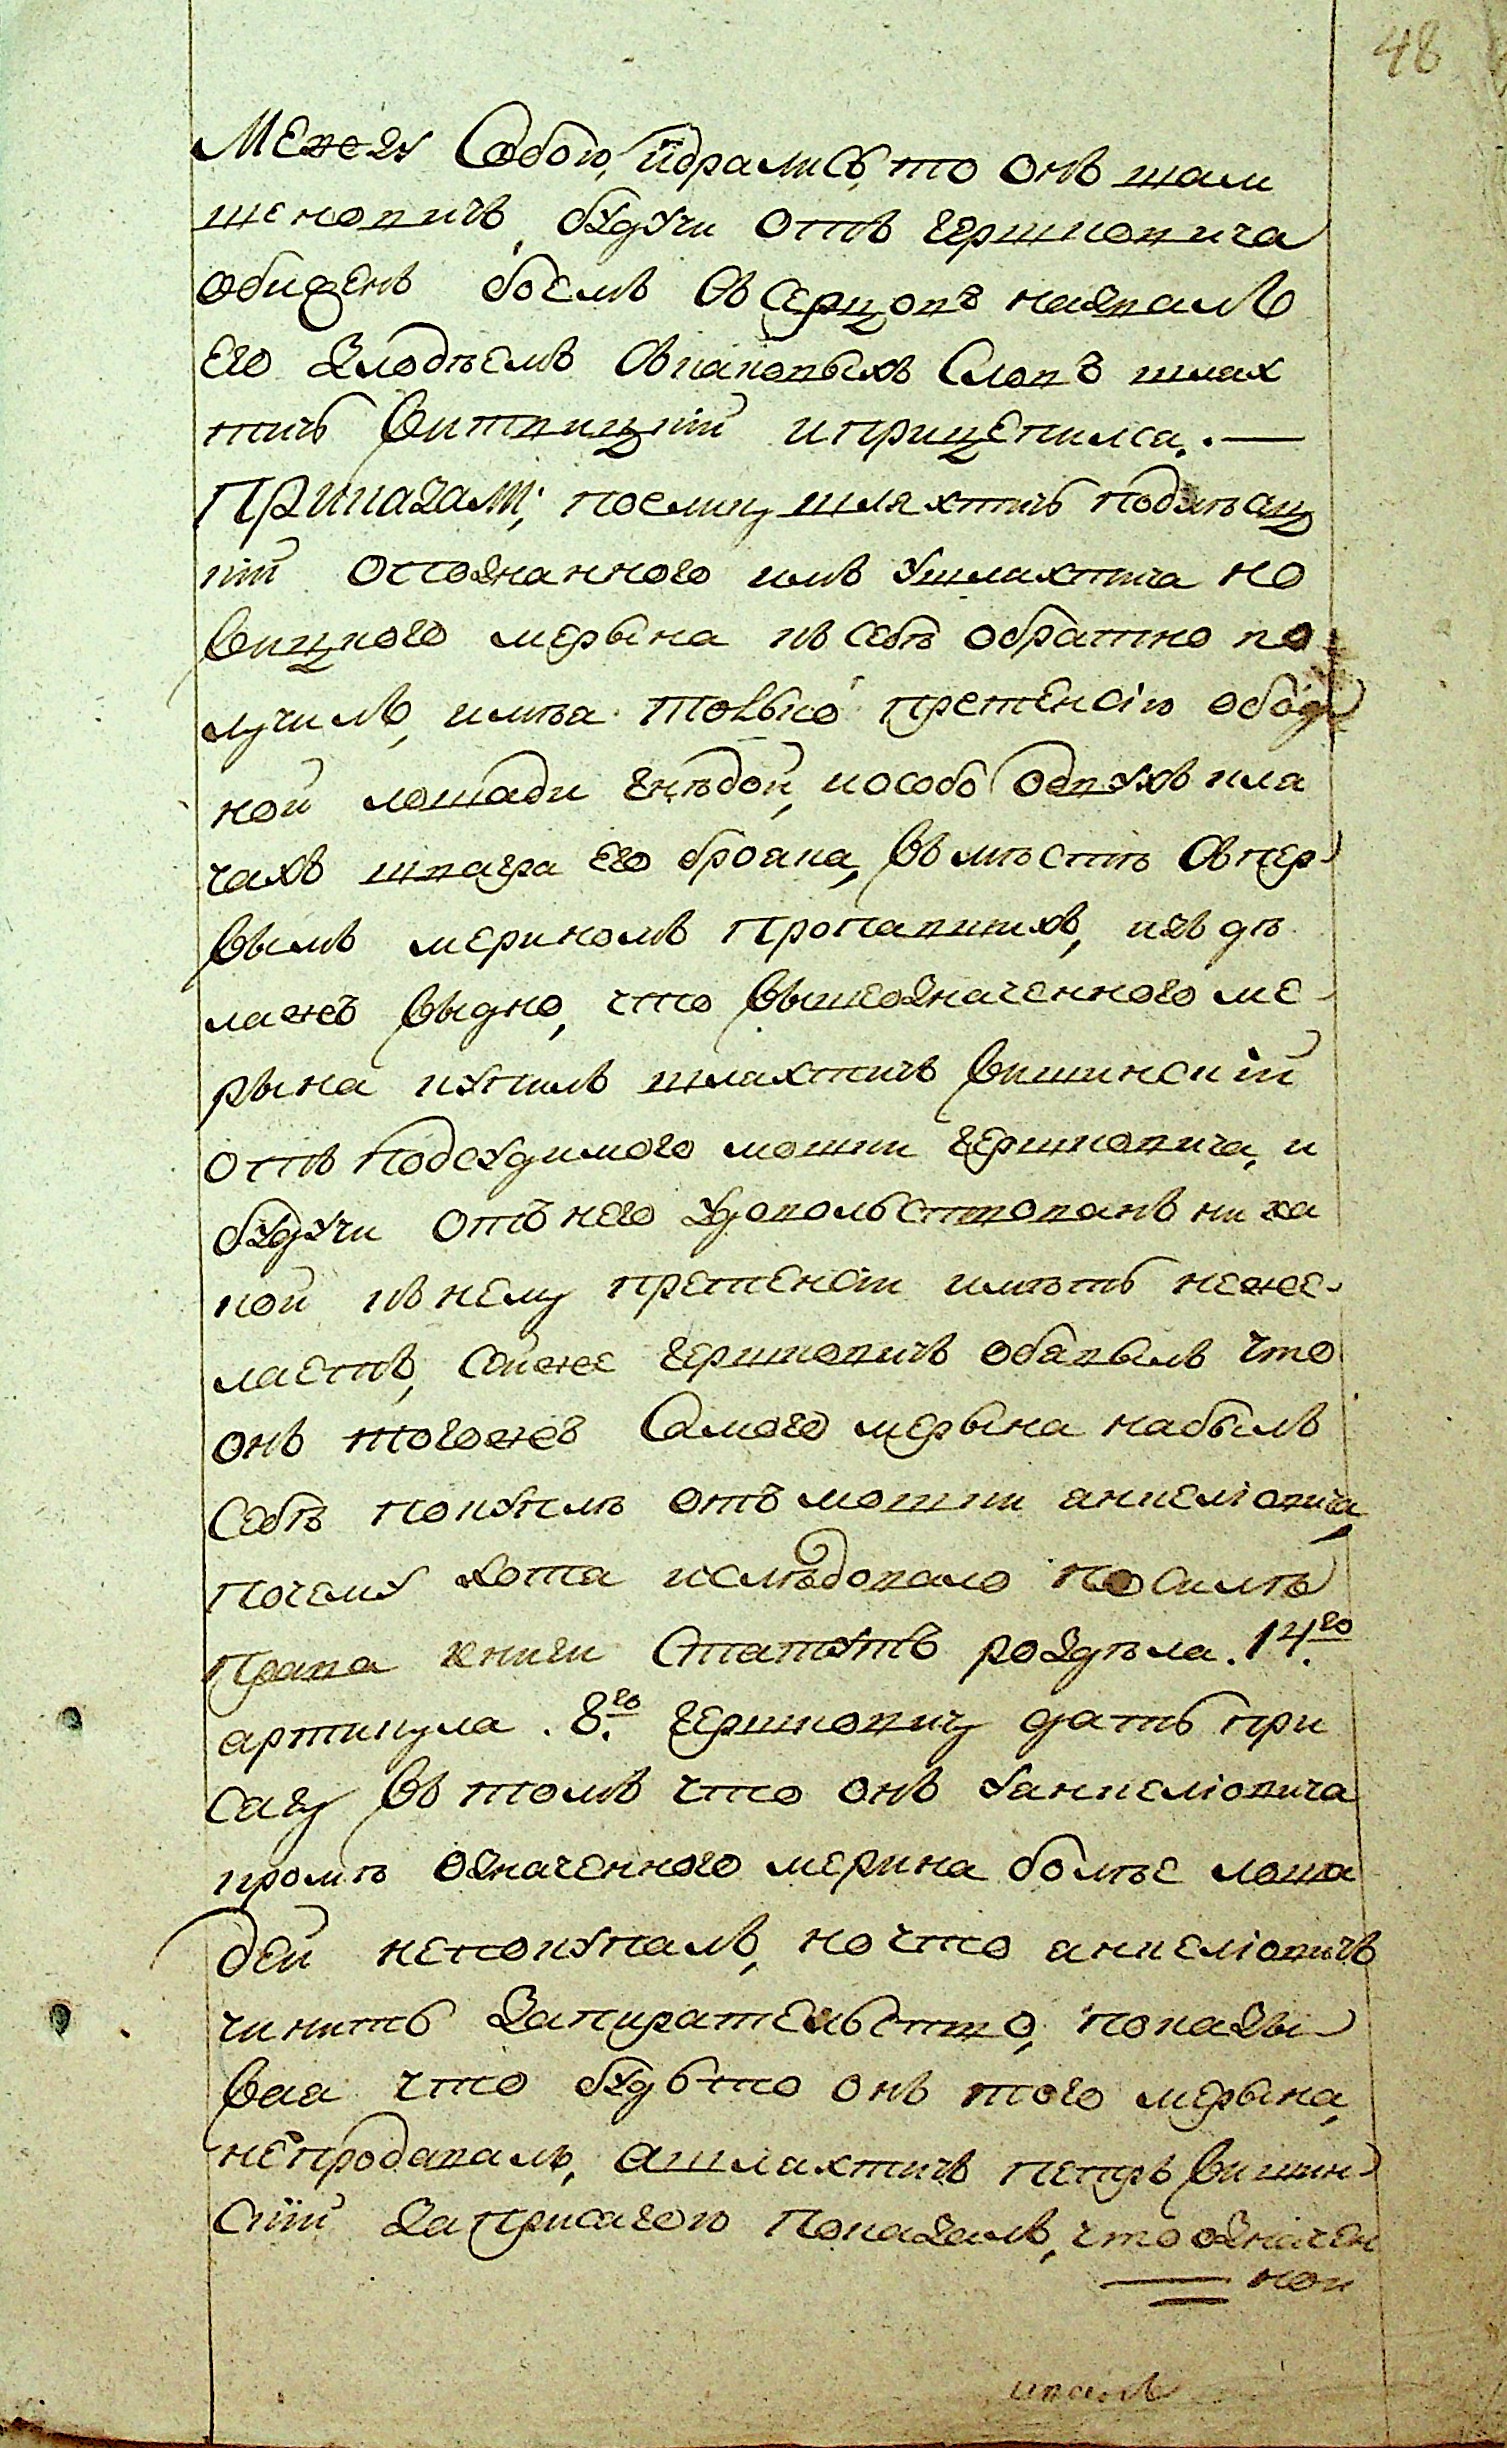 48
Между Собою, идрались, то онъ шам
шеновичъ, будучи отъ гершковича
обиденъ боемъ Въ Серцовъ назвалъ
Его Злодѣемъ Въ каковыхъ Словъ шлах
тичъ Витвицкій иприцепился. —
Приказали; поелику шляхтичъ подгаец
кій отознанного имъ ушлахтича но
Вицкого мерына къ Себѣ обратно по
лучилъ, имѣа только претенсію обод
ной лошади гнѣдой, иособо одвухъ кла
чахъ швагра Его броака, Въмѣстѣ Съ пер
Вымъ мериномъ пропавшихъ, изъ дѣ
лажъ Выдно, что Вышеозначенного ме
рына купилъ шлахтичъ Вишинскій
отъ Подсудимого мошки гершковича, и
будучи отъ него удовольствованъ ни ка
кой къ нему претенсіи имѣть неже
лаетъ, Сейже гершковичъ обявылъ что
онъ тогожъ Самого мерына набылъ
Себѣ покупкѣ отъ мошки анкеліовича,
почему хота ислѣдовало по Силѣ
права книги Статутъ роздѣла. 14го
артикула. 8го гершковичу дать при
Сагу Въ томъ что онъ уанкеліовича
кромѣ означенного мерина болѣе лоша
дей непокупалъ, но что анкеліовичъ
чинитъ Запирательство, показы
Ваа что будьто онъ того мерына,
непродавалъ, ашлахтичъ петръ Вишин
Скій Заприсагою показалъ, что означен
ной